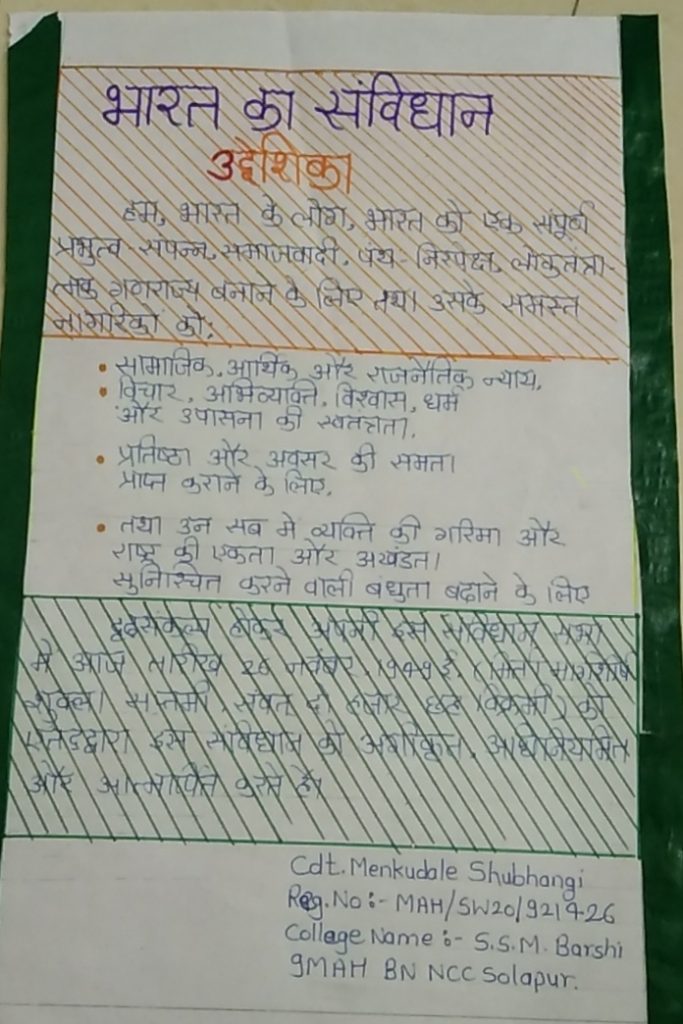 भारत का संविधान
उद्देशिका
हम, भारत के लोग, भारत को एक संपूर्ण
प्रभुत्व-संपन्न, समाजवादी, पंथ-निरपेक्ष, लोकतंत्रा-
त्मक गणराज्य बनाने के लिए तथा उसके समस्त
नागरिकों को:
• सामाजिक, आर्थिक और राजनैतिक न्याय,
• विचार, अभिव्यक्ति, विश्वास, धर्म
और उपासना की स्वतंत्रता,
• प्रतिष्ठा और अवसर की समता
प्राप्त कराने के लिए,
• तथा उन सब मे व्यक्ति की गरिमा और
राष्ट्र की एकता और अखंडता
सुनिश्चित करने वाली बंधुता बढाने के लिए
दृढसंकल्प होकर अपनी इस संविधान सभा
मे आज तारीख 26 नवंबर, 1949 ई. (मिती मार्गशीर्ष
शुक्ला सप्तमी, संवत् दो हजार छह विक्रमी) को
एतद्द्वारा इस संविधान को अंगीकृत, अधिनियमित
और आत्मार्पित करते है।
Cdt. Menkudale Shubhangi
Reg.No :- MAH/SW20/921426
Collage Name :- S.S.M. Barshi
9MAH BN NCC Solapur.